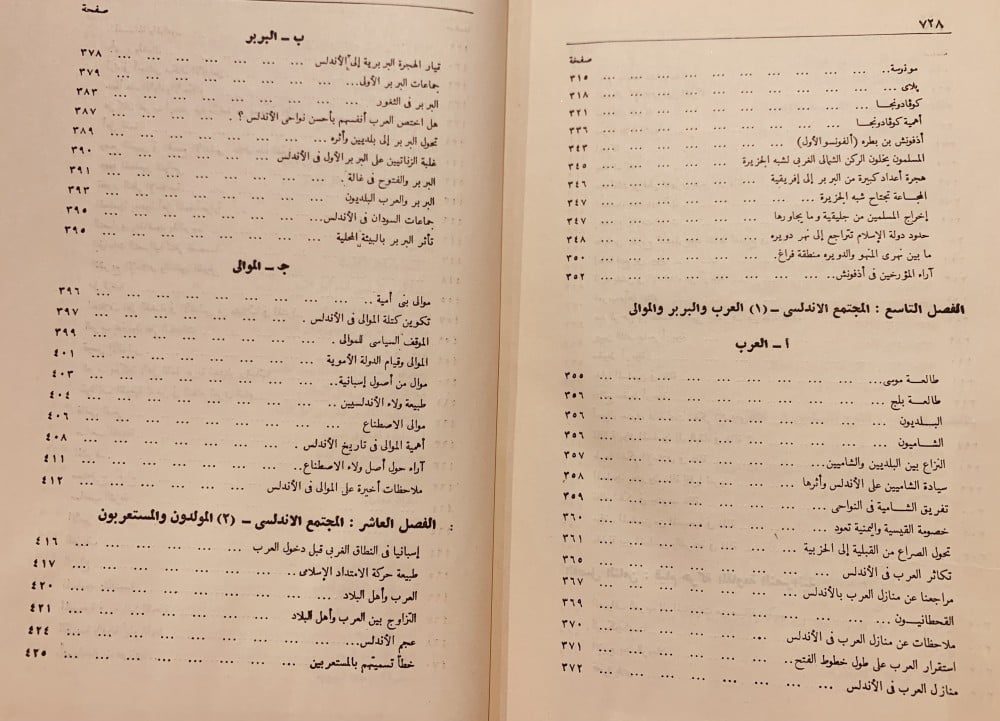 ٧٢٨
صفحة
مونوسة .. ... ... ... ... ... ... ... ... ... ٣١٥
پلاى ... ... ... ... ... ... ... ... ... ... ٣١٨
كوڤادونجا ... ... ... ... ... ... ... ... ... ٣٢١
أهمية كوڤادونجا ... ... ... ... ... ... ... ... ٣٣٦
أذفونش بن بطره (ألفونسو الأول) ... ... ... ... ... ٣٤٣
المسلمون يخلون الركن الشمالى الغربى لشبه الجزيرة ... ... ٣٤٥
هجرة أعداد كبيرة من البربر إلى إفريقية ... ... ... ... ٣٤٦
المجاعة تجتاح شبه الجزيرة ... ... ... ... ... ... ٣٤٧
إخراج المسلمين من جليقية وما يجاورها ... ... ... ... ٣٤٧
حدود دولة الإسلام تتراجع إلى نهر دويره ... ... ... ... ٣٤٨
ما بين نهرى المنهو والدويره منطقة فراغ. ... ... ... ... ٣٥٠
آراء المؤرخين فى أذفونش .. ... ... ... ... ... ... ٣٥٢
الفصل التاسع : المجتمع الاندلسى – (١) العرب والبربر والموالى
أ – العرب
طالعة موسى ... ... ... ... ... ... ... ... ... ٣٥٥
طالعة بلج ... ... ... ... ... ... ... ... ... ٣٥٦
البلديون ... ... ... ... ... ... ... ... ... ٣٥٦
الشاميون ... ... ... ... ... ... ... ... ... ٣٥٦
النزاع بين البلديين والشاميين ... ... ... ... ... ... ٣٥٧
سيادة الشاميين على الأندلس وأثرها ... ... ... ... ... ٣٥٨
تفريق الشامية فى النواحى ... ... ... ... ... ... ٣٥٩
خصومة القيسية واليمنية تعود ... ... ... ... ... ... ٣٦٠
تحول الصراع من القبلية إلى الحزبية ... ... ... ... ... ٣٦١
تكاثر العرب فى الأندلس ... ... ... ... ... ... ٣٦٥
مراجعنا عن منازل العرب بالأندلس ... ... ... ... ... ٣٦٧
القحطانيون ... ... ... ... ... ... ... ... ... ٣٦٩
ملاحظات عن منازل العرب فى الأندلس ... ... ... ... ٣٧٠
استقرار العرب على طول خطوط الفتح .. ... ... ... ... ٣٧١
منازل العرب فى الأندلس ... ... ... ... ... ... ٣٧٢
صفحة
ب – البربر
تيار الهجرة البربرية إلى الأندلس ... ... ... ... ... ٣٧٨
جماعات البربر الأولى ... ... ... ... ... ... ... ٣٧٩
البربر فى الثغور ... ... ... ... ... ... ... ... ٣٨٣
هل اختص العرب أنفسهم بأحسن نواحى الأندلس ؟ . ... ... ٣٨٧
تحول البربر إلى بلديين وأثره ... ... ... ... ... ... ٣٨٩
غلبة الزناتيين على البربر الأول فى الأندلس ... ... ... ... ٣٩٠
البربر والفتوح فى غالة . ... ... ... ... ... ... ٣٩١
البربر والعرب البلديون ... ... ... ... ... ... ... ٣٩٣
جماعات السودان فى الأندلس ... ... ... ... ... ... ٣٩٥
تأثر البربر بالبيئة المحلية ... ... ... ... ... ... ... ٣٩٥
جـ – الموالى
موالى بنى أمية .. ... ... ... ... ... ... ... ... ٣٩٦
تكوين كتلة الموالى فى الأندلس . ... ... ... ... ... ٣٩٧
الموقف السياسى للموالى . ... ... ... ... ... ... ٣٩٩
الموالى وقيام الدولة الأموية ... ... ... ... ... ... ٤٠١
موال من أصول إسبانية .. ... ... ... ... ... ... ٤٠٣
طبيعة ولاء الأندلسيين .. ... ... ... ... ... ... ٤٠٤
موالى الاصطناع ... ... ... ... ... ... ... ... ٤٠٦
أهمية الموالى فى تاريخ الأندلس . ... ... ... ... ... ٤٠٨
آراء حول أصل ولاء الاصطناع .. ... ... ... ... ... ٤١١
ملاحظات أخيرة على الموالى فى الأندلس ... ... ... ... ٤١٢
الفصل العاشر : المجتمع الاندلسى – (٢) المولدون والمستعربون
إسبانيا فى النطاق الغربى قبل دخول العرب ... ... ... ... ٤١٦
طبيعة حركة الامتداد الإسلامى .. ... ... ... ... ... ٤١٧
العرب وأهل البلاد ... ... ... ... ... ... ... ... ٤٢٠
التزاوج بين العرب وأهل البلاد ... ... ... ... ... ... ٤٢١
عجم الأندلس ... ... ... ... ... ... ... ... ... ٤٢٤
خطأ تسميتهم بالمستعربين ... ... ... ... ... ... ٤٢٥